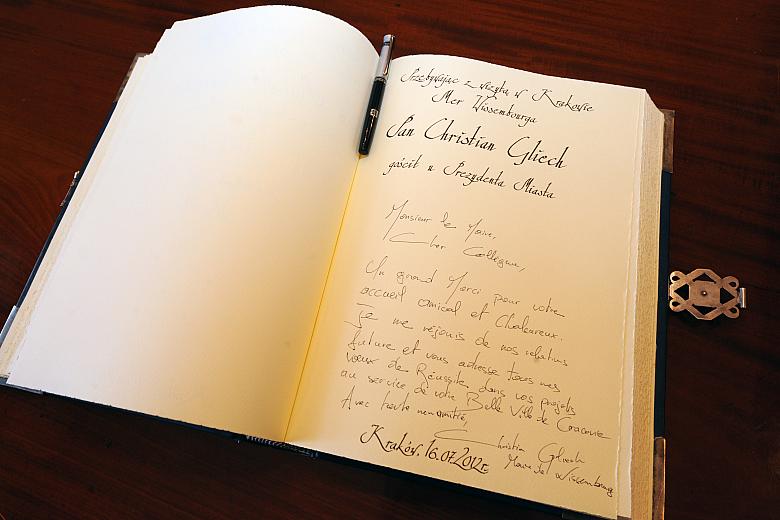 Przebywając z wizytą w Krakowie
Mer Wissembourga
Pan Christian Gliech
gościł u Prezydenta Miasta
Monsieur le Maire,
Cher Collègue,
Un grand Merci pour votre
accueil amical et Chaleureux.
Je me réjouis de nos relations
future et vous adresse tous mes
vœux de Réussite dans vos projets
au service de votre Belle Ville de Cracovie
Avec toute mon amitié,
Christian Gliech
Maire de Wissembourg
Kraków, 16.07.2012r.